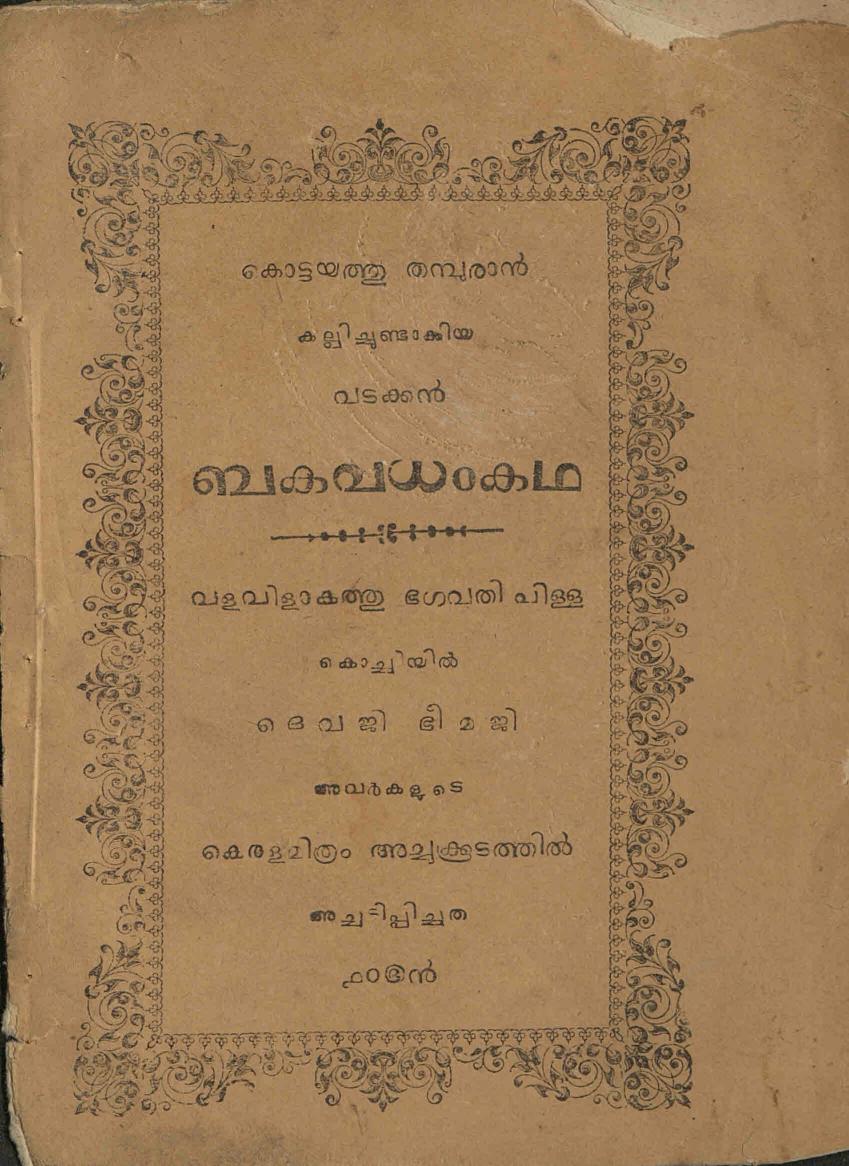 കൊട്ടയത്തു തമ്പുരാൻ
കല്പിച്ചുണ്ടാക്കിയ
വടക്കൻ
ബകവധംകഥ
വളവിളാകത്തു ഭഗവതി പിള്ള
കൊച്ചിയിൽ
ദെവജി ഭീമജി
അവർകളുടെ
കെരളമിത്രം അച്ചുക്കൂടത്തിൽ
അച്ചടിപ്പിച്ചത